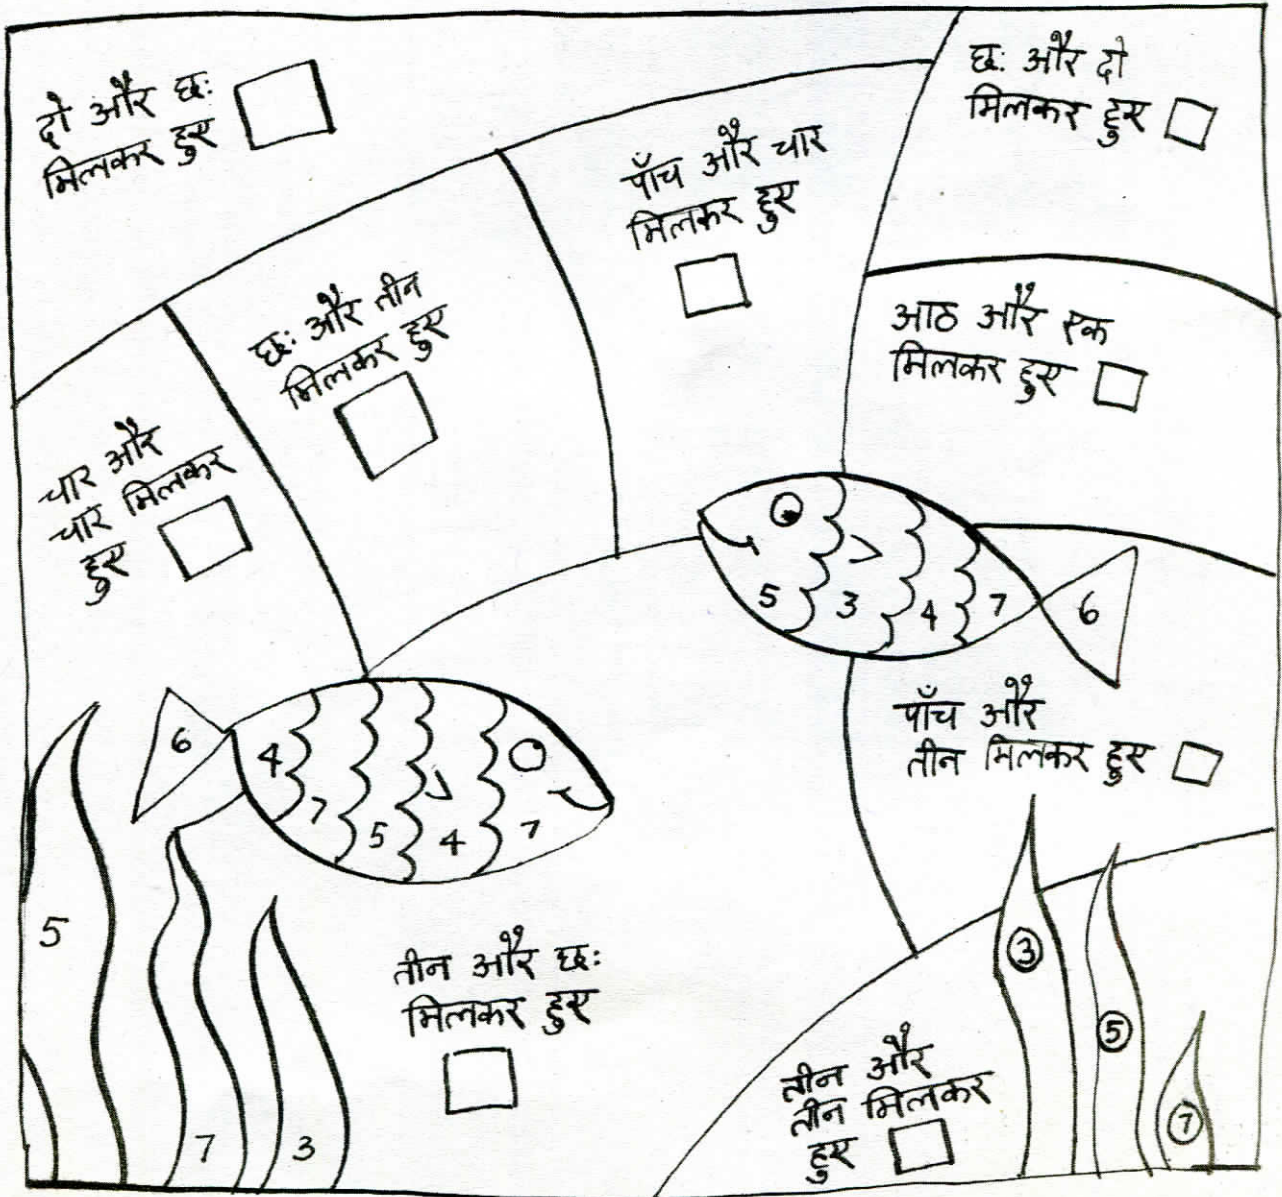 दो और छः
मिलकर हुए
छः और दो
मिलकर हुए
पाँच और चार
मिलकर हुए
छः और तीन
मिलकर हुए
आठ और एक
मिलकर हुए
चार और
चार मिलकर
हुए
5 3 4 7 6
6 4 7 5 4 7
पाँच और
तीन मिलकर हुए
5
7
3
तीन और छः
मिलकर हुए
3
5
7
तीन और
तीन मिलकर
हुए